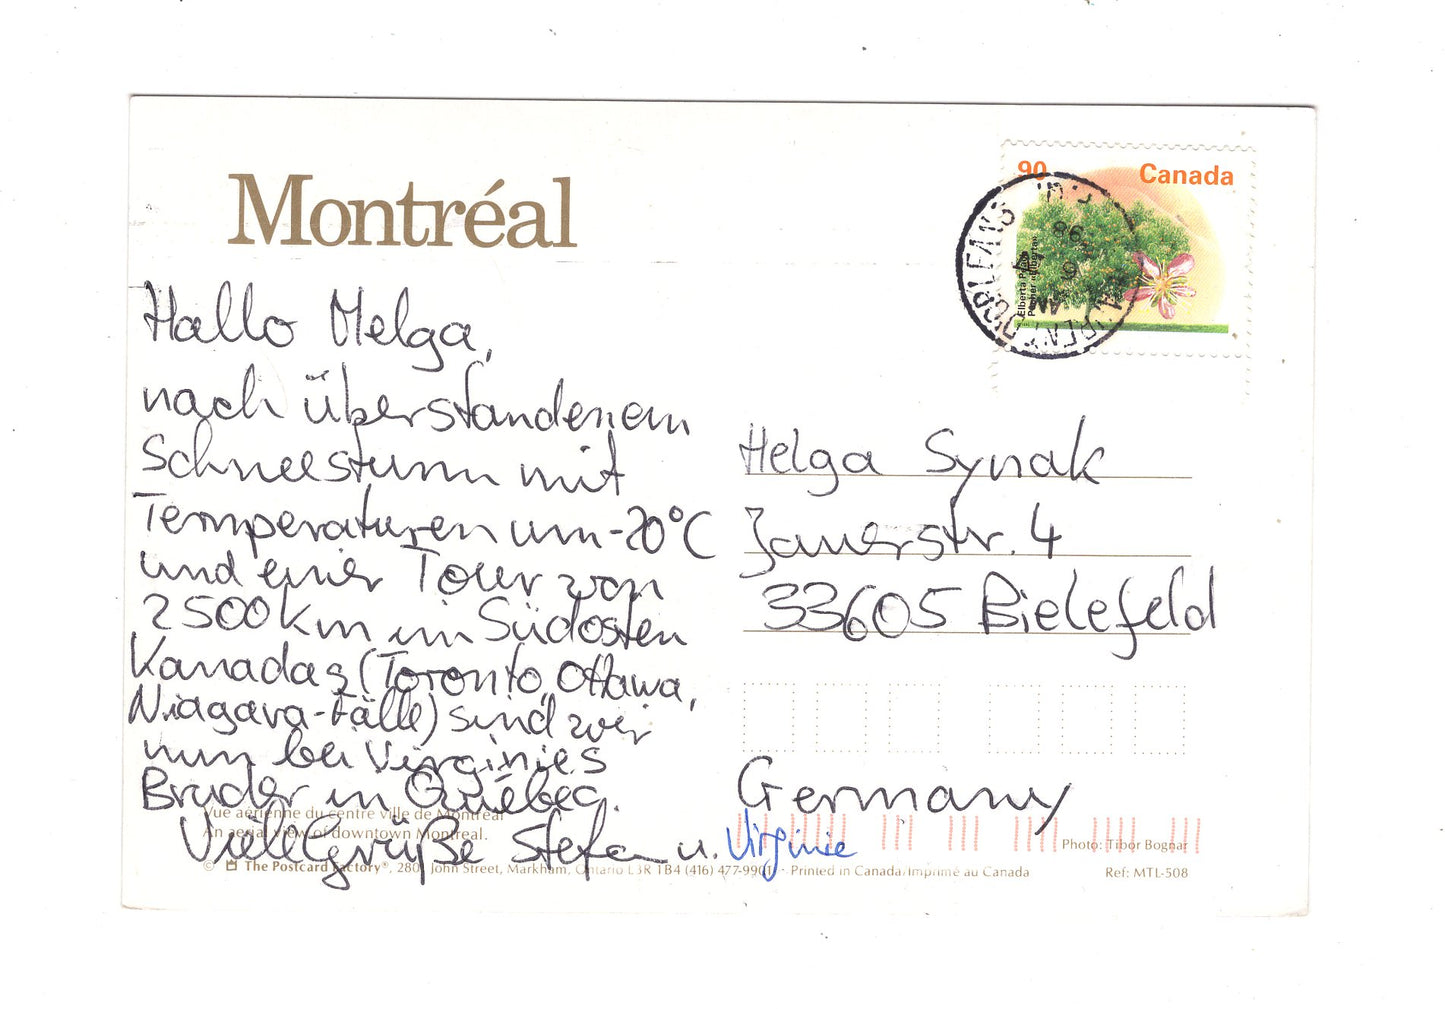 Montréal
90
Canada
Elberta Peach
Pêcher «Elberta»
Hallo Helga,
nach überstandenem
Schneesturm mit
Temperaturen um -20°C
und einer Tour von
2500km im Südosten
Kanadas (Toronto, Ottawa,
Niagara-Fälle) sind wir
nun bei Virginies
Bruder in Québec.
Viele Grüße Stefan u. Virginie
Helga Synak
Jauerstr. 4
33605 Bielefeld
Germany
Vue aérienne du centre ville de Montréal
An aerial view of downtown Montreal.
Photo: Tibor Bognar
© The Postcard Factory®, 280 John Street, Markham, Ontario L3R 1B4 (416) 477-9901 · Printed in Canada/Imprimé au Canada
Ref: MTL-508